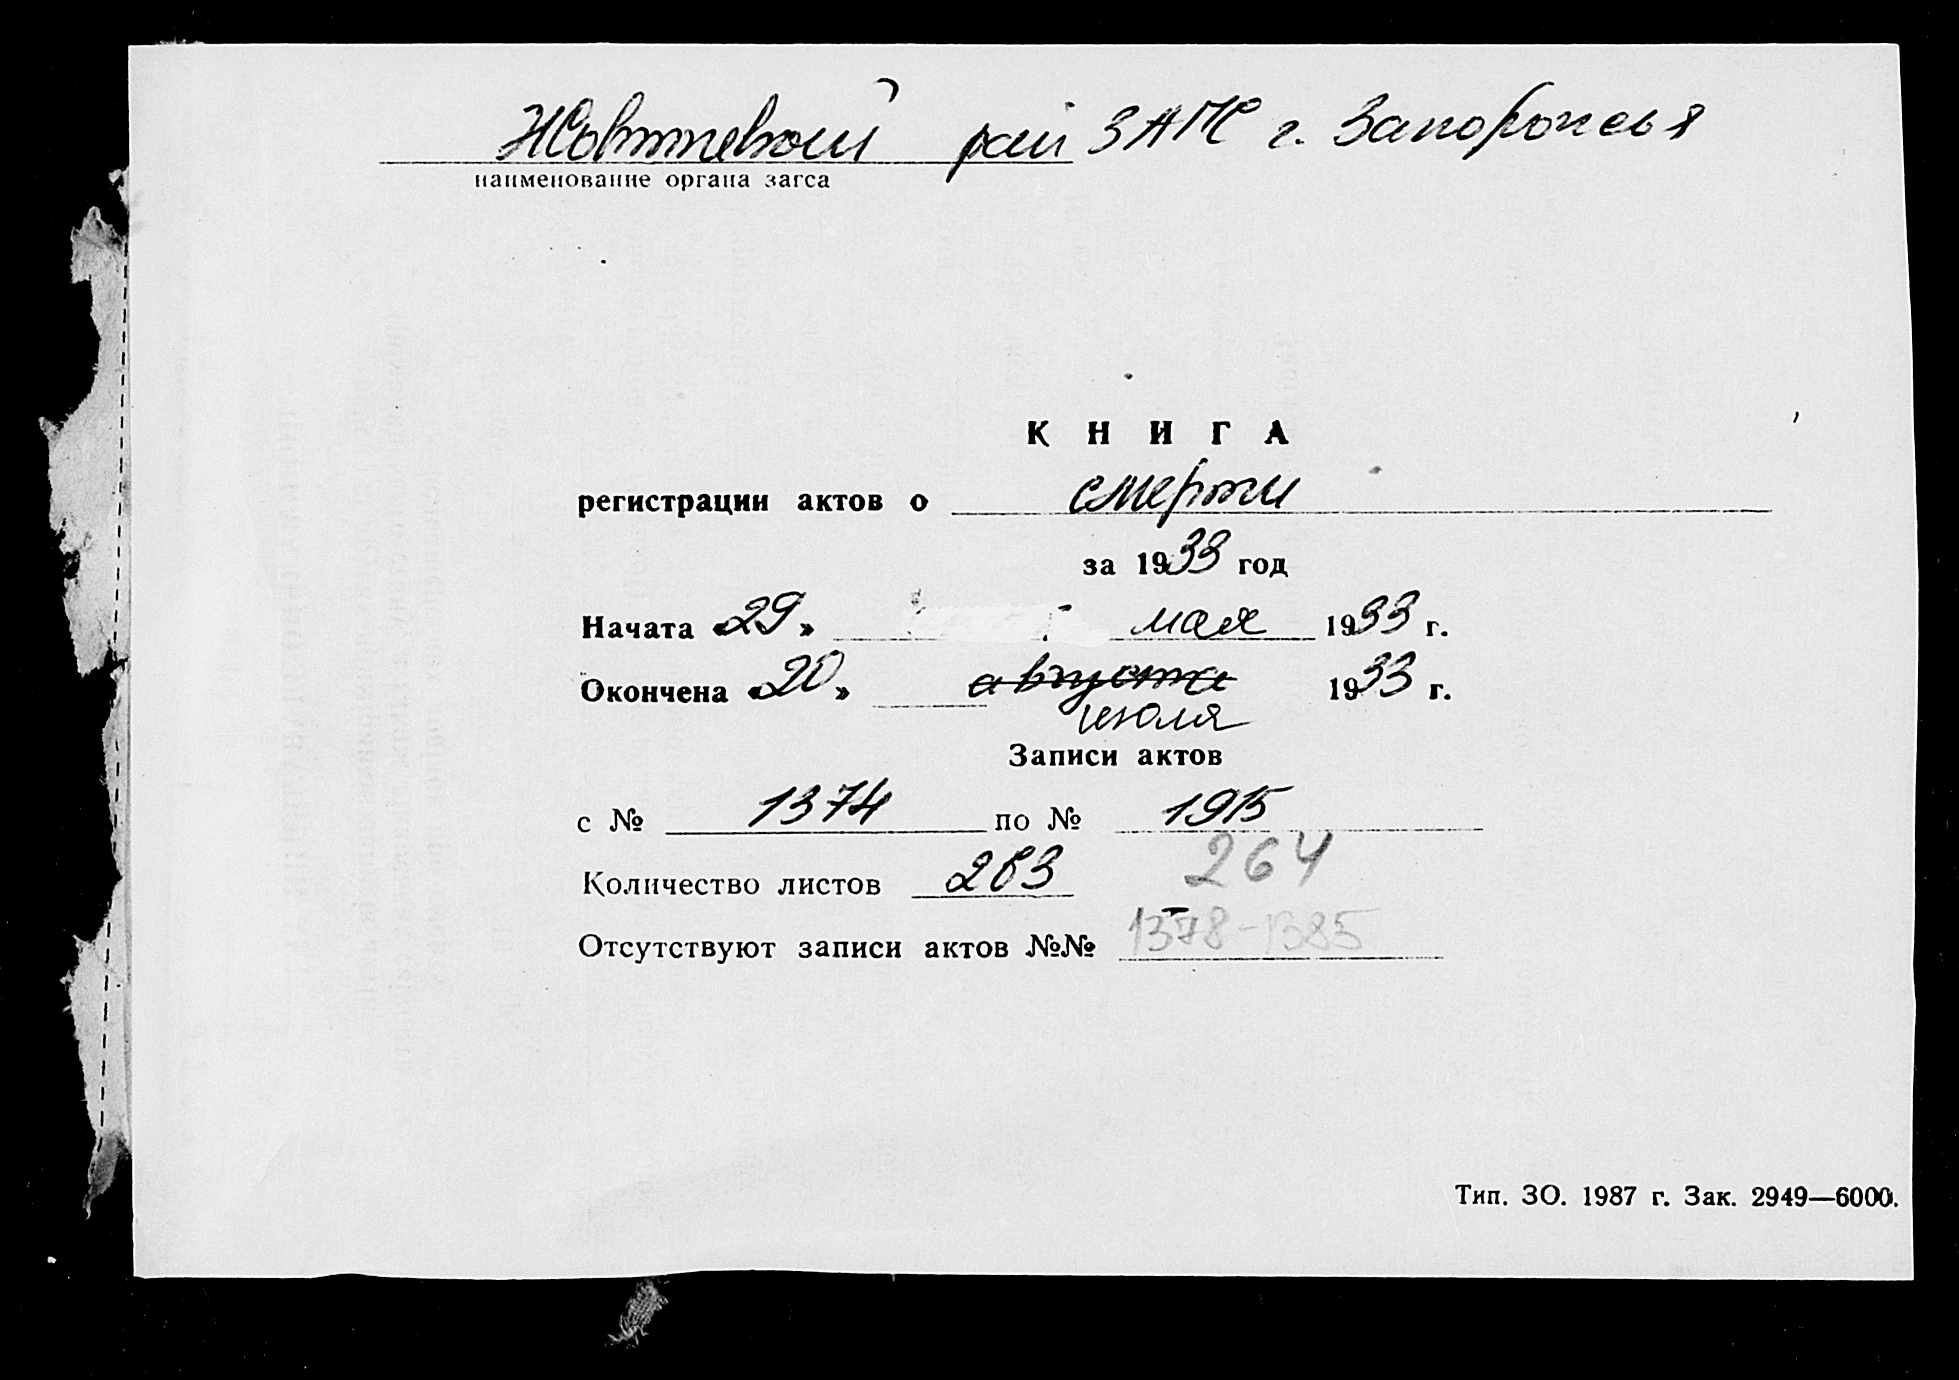 Жовтневый рай ЗАГС г. Запорожья
наименование органа загса
КНИГА
регистрации актов о смерти
за 1933 год
Начата «29» мая 1933 г.
Окончена «20» августа 1933 г.
июля
Записи актов
с № 1374 по № 1915
Количество листов 263 264
Отсутствуют записи актов №№ 1378-1385
Тип. ЗО. 1987 г. Зак. 2949—6000.